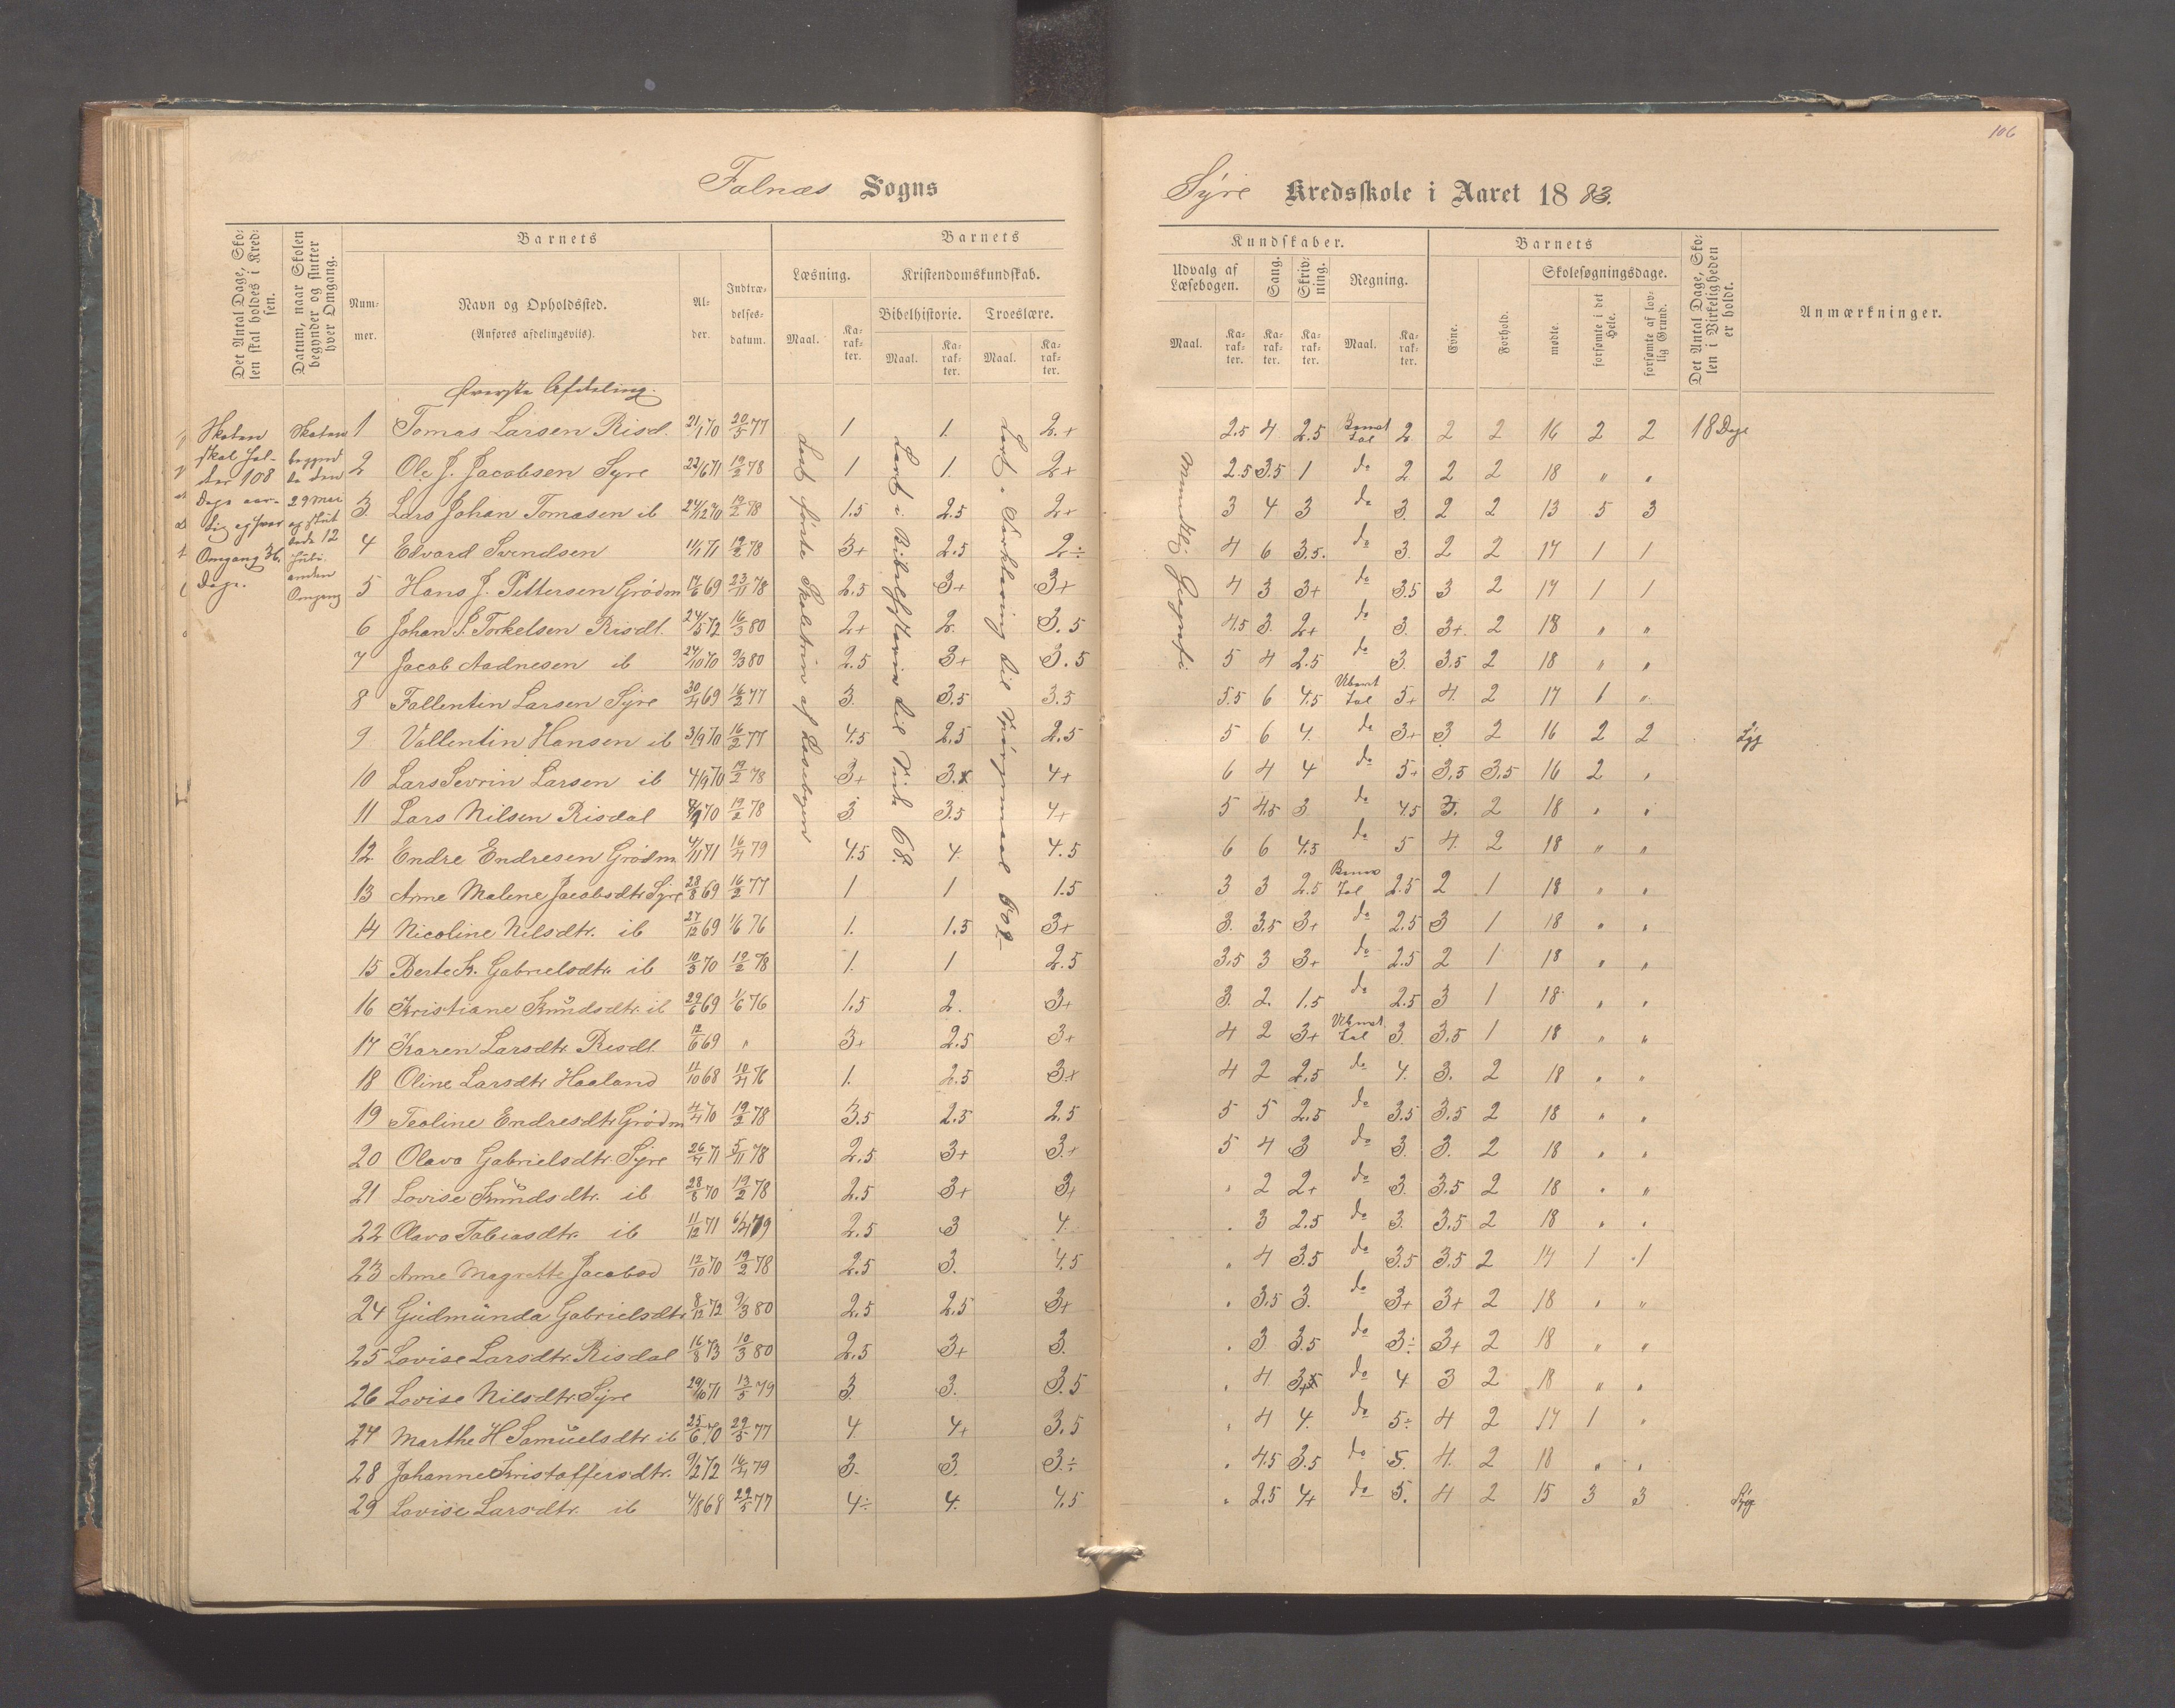 106
Falnæs Sogns
Syre Kredsskole i Aaret 1883.
Det Antal Dage, Skolen skal holdes i Kredsen.
Datum, naar Skolen begynder og slutter hver Omgang.
Barnets
Nummer.
Navn og Opholdssted.
(Anføres afdelingsviis).
Alder.
Indtrædelsesdatum.
Barnets
Læsning.
Maal.
Karakter.
Kristendomskundskab.
Bibelhistorie.
Maal.
Karakter.
Troeslære.
Maal.
Karakter.
Kundskaber.
Udvalg af Læsebogen.
Maal.
Karakter.
Sang.
Karakter.
Skrivning.
Karakter.
Regning.
Maal.
Karakter.
Barnets
Evne.
Forhold.
Skolesøgningsdage.
mødte.
forsømte i det Hele.
forsømte af lovlig Grund.
Det Antal Dage, Skolen i Virkeligheden er holdt.
Anmærkninger.
Øverste Afdeling.
Skolen
skal hol-
des 108
Dage aar-
lig og hver
Omgang 36.
Dage.
Skolen
begynd
te den
29 Mai
og slut
tede 12
Juli.
anden
Omgang
Læst første Skoletrin af Læsebogen
Lært i Bibelhistorie til Side 68.
Lært i Forklaring til Spørgsmaal 602
Mundtlig Geografi
1 Tomas Larsen Risd. 21/1 70 20/5 77 1 1. 2.+ 2.5 4 2.5 Benævt Tal 2 2 2 16 2 2 18 Dage
2 Ole J. Jacobsen Syre 22/6 71 19/2 78 1 1. 2+ 2.5 3.5 1 do 2 2 2 18 " "
3. Lars Johan Tomasen ib 24/12 70 19/2 78 1.5 2.5 2+ 3 4 3 do 3. 2 2 13 5 3
4 Edvard Svendsen 1/1 71 19/2 78 3+ 2.5 2÷ 4 6 3.5. do 3. 2 2 17 1 1
5 Hans J. Pettersen Grødm 17/6 69 23/11 78 2.5 3+ 3+ 4 3 3+ do 3.5 3 2 17 1 1
6 Johan S. Torkelsen Risdl. 24/5 72 16/3 80 2+ 2. 3.5 4.5 3. 2+ do 3. 3+. 2 18 " "
7 Jacob Aadnesen ib 24/10 70 9/3 80 2.5 3+ 3.5 5 4 2.5 do 3. 3.5 2 18 " "
8 Fallentin Larsen Syre 30/4 69 16/2 77 3. 3.5 3.5 5.5 6 4.5 Ubævt Tal 5+ 4. 2 17 1 "
9 Vallentin Hansen ib 3/9 70 16/2 77 4.5 2.5 2.5 5 6 4. do 3+ 3 2 16 2 2 Syg
10 Lars Sevrin Larsen ib 4/9 70 19/2 78 3+ 3.x 4+ 6 4 4 do 5+ 3.5 3.5 16 2 "
11 Lars Nilsen Risdal 4/9 70 19/2 78 3 3.5 4+ 5 4.5 3 do 4.5 3. 2 18 " "
12 Endre Endresen Grødm 4/11 71 16/4 79 4.5 4. 4.5 6 6 4.5 do 5 4. 2 18 " "
13 Anne Malene Jacobsdtr Syre 28/8 69 16/2 77 1 1 1.5 3 3 2.5 Benæv Tal 2.5 2 1 18 " "
14 Nicoline Nilsdtr. ib 27/12 69 1/6 76 1. 1.5 3+ 3. 3.5 3+ do 2.5 3 1 18 " "
15 Berte K. Gabrielsdtr. ib 10/3 70 19/2 78 1. 1 2.5 3.5 3 3+ do 2.5 2 1 18 " "
16 Kristiane Knudsdtr. ib 29/6 69 1/6 76 1.5 2. 3+ 3. 2. 1.5 do 2.5 3 1 18 " "
17 Karen Larsdtr. Risdl. 12/6 69 " 3+ 2.5 3+ 4 2 3+ Ubævt Tal 3. 3.5 1 18 " "
18 Oline Larsdtr Haaland 11/10 68 10/4 76 1. 2.5 3+ 4 2 2.5 do 4. 3. 2 18 " "
19 Teoline Endresdtr Grødm 4/4 70 19/2 78 3.5 2.5 2.5 5 5 2.5 do 3.5 3.5 2 18 " "
20 Olava Gabrielsdtr. Syre 26/4 71 5/11 78 2.5 3+ 3.+ 5 4 3 do 3. 3. 2 18 " "
21 Lovise Knudsdtr. ib 28/8 70 19/2 78 2.5 3+ 3+ " 2 2+ do 3. 3.5 2 18 " "
22 Olava Tobiasdtr. ib 11/12 71 6/4 79 2.5 3 4. " 3 2.5 do 3. 3.5 2 18 " "
23 Anne Magrette Jacobsd 12/10 70 19/2 78 2.5 3. 4.5 " 4 3.5 do 3.5 3.5 2 17 1 1
24 Gudmunda Gabrielsdtr 8/12 72 9/3 80 2.5 2.5 3+ " 3.5 3. do 3+ 3+ 2 18 " "
25 Lovise Larsdtr. Risdal 16/8 73 10/3 80 2.5 3+ 3. " 3 3.5 do 3÷ 3+ 2 18 " "
26 Lovise Nilsdtr. Syre 29/10 71 13/5 79 3. 3. 3.5 " 4 3+ do 4 3 2 18 " "
27 Marthe H Samuelsdtr ib 25/6 70 29/5 77 4. 4+ 3.5 " 4 4. do 5÷ 4 2 17 1 "
28 Johanne Kristoffersdtr. 9/2 72 16/4 79 3. 3. 3÷ " 4.5 3.5 do 5. 4. 2 18 " "
29 Lovise Larsdtr. ib 4/8 68 29/5 77 4÷ 4. 4.5 " 2.5 4+ do 5. 4 2 15 3 3 Syg